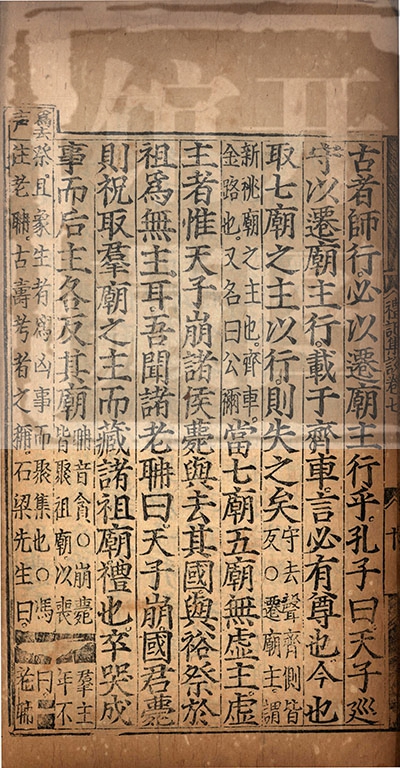 禮記集說卷七 十
古者師行。必以遷廟主行乎。孔子曰。天子廵
守以遷廟主行。載于齊車。言必有尊也。今也
取七廟之主以行。則失之矣
守去聲齊側皆
反○遷廟主謂
新祧廟之主也。齊車。
金路也。又名曰公禰
當七廟五廟無虛主。虛
主者。惟天子崩。諸侯薨與去其國與祫祭於
祖。爲無主耳。吾聞諸老聃曰。天子崩。國君薨
則祝取羣廟之主而藏諸祖廟。禮也。卒哭成
事而后主各反其廟
聃音貪○崩薨羣主
皆聚祖廟以喪年不
爲去
声
祭。且象生者爲凶事而聚集也○馮曰。
注老聃。古壽考者之稱。石梁先生曰。老聃